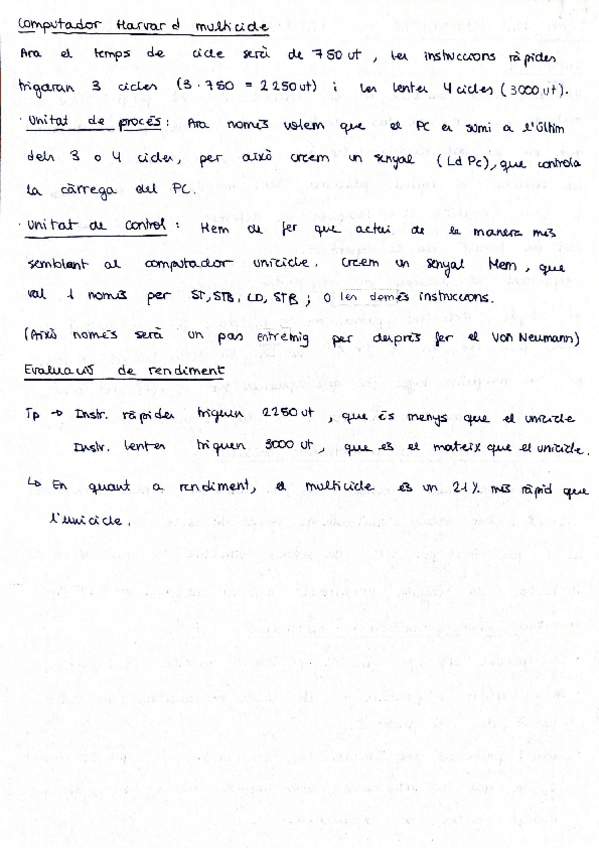 Computador Harvard multicicle
Ara el temps de cicle serà de 750 ut, les instruccions ràpides
trigaran 3 cicles (3·750 = 2250 ut) i les lentes 4 cicles (3000 ut).
· Unitat de procés: Ara només volem que el PC es sumi a l'últim
dels 3 o 4 cicles, per això creem un senyal (Ld Pc), que controla
la càrrega del PC.
· Unitat de control: Hem de fer que actui de la manera més
semblant al computador unicicle. Creem un senyal Mem, que
val 1 només per ST, STB, LD, STB; 0 les demés instruccions.
(Això només serà un pas entremig per després fer el Von Neumann)
Evaluació de rendiment
Tp → Instr. ràpides triguen 2250 ut, que és menys que el unicicle
Instr. lentes triguen 3000 ut, que és el mateix que el unicicle.
↳ En quant a rendiment, el multicicle és un 21% més ràpid que
l'unicicle.